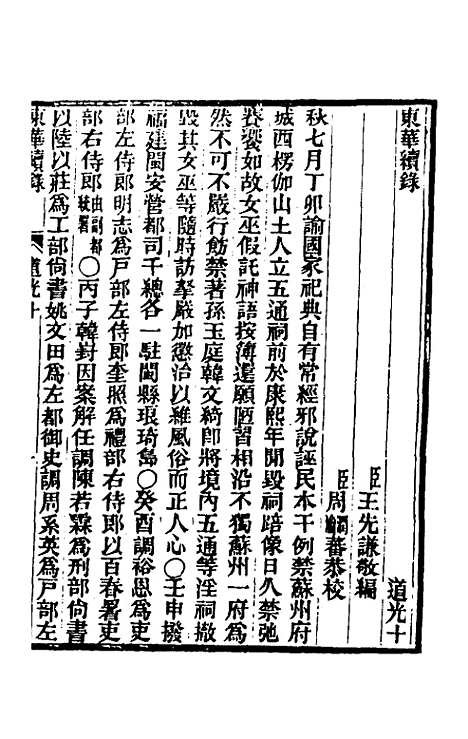 東華續錄
道光十
臣王先謙敬編
臣周瀹蕃恭校
秋七月丁卯諭國家祀典自有常經邪說誣民本干例禁蘇州府
城西楞伽山土人立五通祠前於康熙年間毀祠踣像日久禁弛
賽饗如故女巫假託神語按簿還願陋習相沿不獨蘇州一府爲
然不可不嚴行飭禁著孫玉庭韓文綺卽將境內五通等淫祠撤
毀其女巫等隨時訪拏嚴加懲治以維風俗而正人心〇壬申撥
福建閩安營都司千總各一駐閩縣琅琦島〇癸酉調裕恩爲吏
部左侍郎明志爲戶部左侍郎奎照爲禮部右侍郎以百春署吏
部右侍郎由副都統署〇丙子韓崶因案解任調陳若霖爲刑部尙書
以陸以莊爲工部尙書姚文田爲左都御史調周系英爲戶部左
東華續錄
道光十